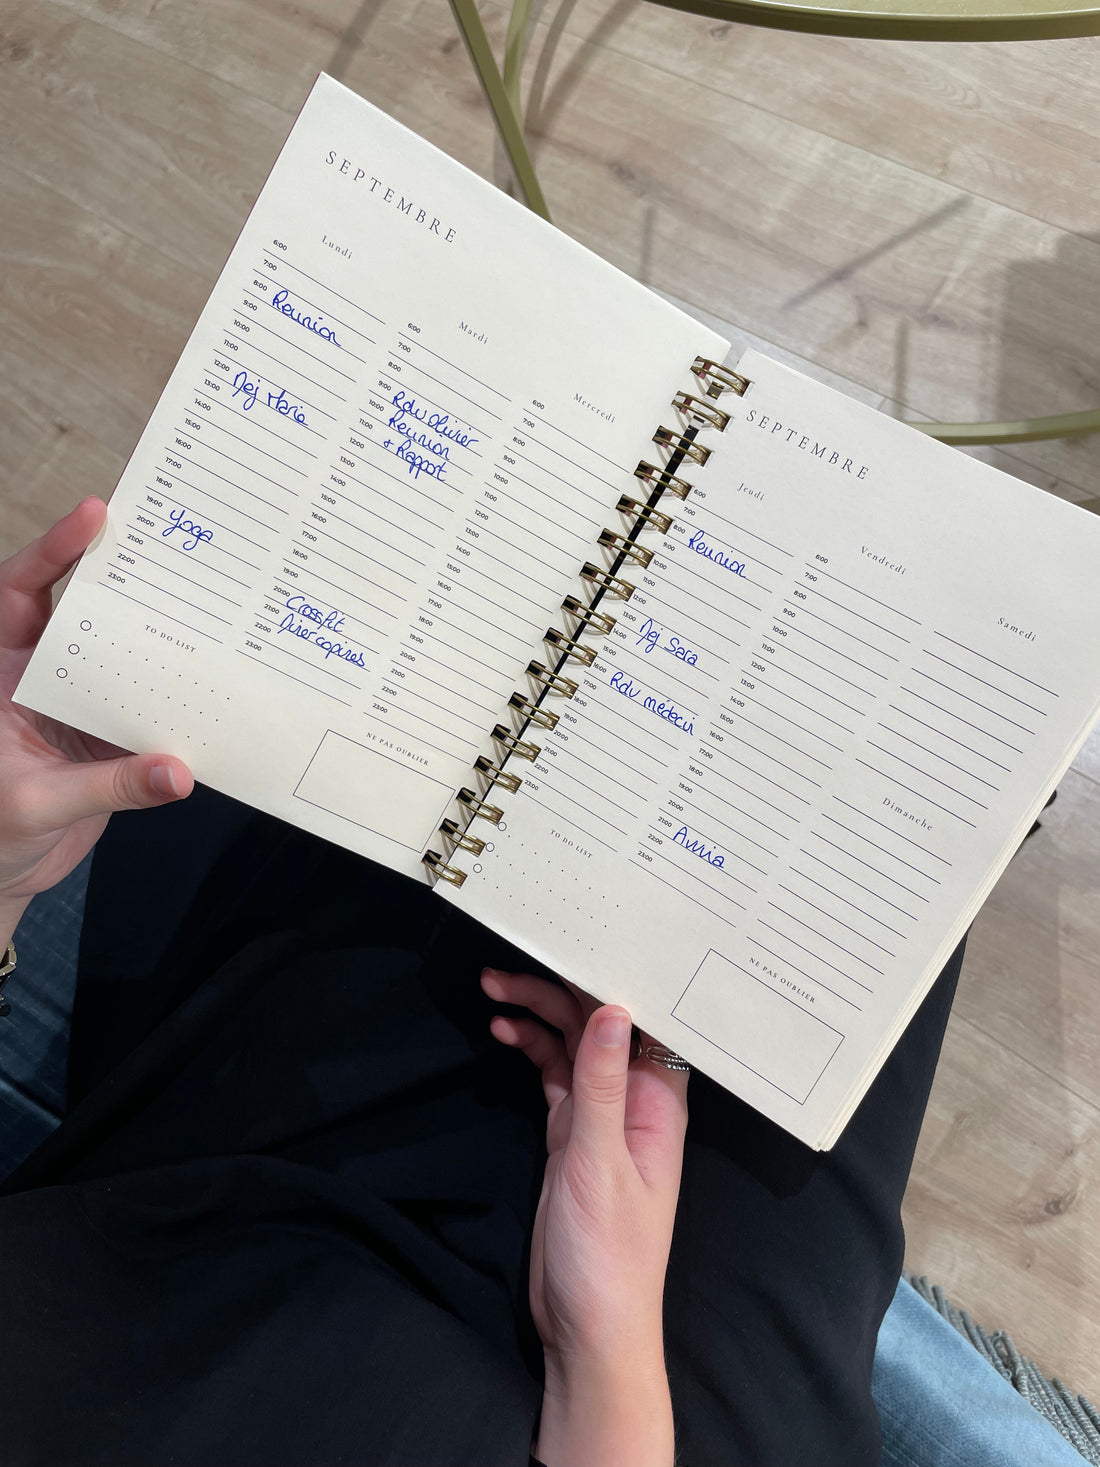 SEPTEMBRE
Lundi
6:00
7:00
8:00
9:00 Reunion
10:00
11:00
12:00
13:00 Dej Marie
14:00
15:00
16:00
17:00
18:00
19:00
20:00 Yoga
21:00
22:00
23:00
Mardi
6:00
7:00
8:00
9:00
10:00 Rdv Olivier
11:00 Reunion
12:00 + Rapport
13:00
14:00
15:00
16:00
17:00
18:00
19:00
20:00
21:00 Crossfit
22:00 Diner copines
23:00
Mercredi
6:00
7:00
8:00
9:00
10:00
11:00
12:00
13:00
14:00
15:00
16:00
17:00
18:00
19:00
20:00
21:00
22:00
23:00
TO DO LIST
NE PAS OUBLIER
SEPTEMBRE
Jeudi
6:00
7:00
8:00
9:00 Reunion
10:00
11:00
12:00
13:00
14:00 Dej Sara
15:00
16:00
17:00 Rdv médecin
18:00
19:00
20:00
21:00
22:00
23:00
Vendredi
6:00
7:00
8:00
9:00
10:00
11:00
12:00
13:00
14:00
15:00
16:00
17:00
18:00
19:00
20:00
21:00
22:00
23:00
Samedi
Dimanche
TO DO LIST
NE PAS OUBLIER